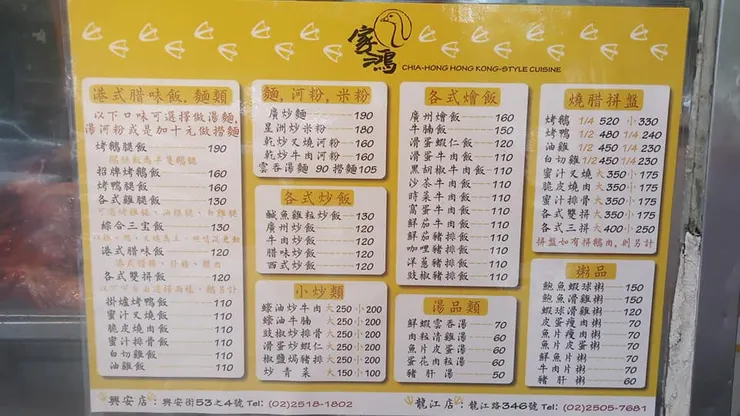 家鴻
CHIA-HONG HONG KONG-STYLE CUISINE
港式腊味飯,麵類
以下口味可選擇做湯麵,
湯河粉或是加十元做撈麵
烤鵝腿飯 190
招牌烤鵝飯 160
烤鴨腿飯 160
各式雞腿飯 130
可選烤雞腿、油雞腿、白雞腿
綜合三寶飯 130
港式腊味飯 120
各式雙拼飯 120
掛爐烤鴨飯 110
蜜汁叉燒飯 110
脆皮燒肉飯 110
蜜汁排骨飯 110
白切雞飯 110
油雞飯 110
麵,河粉,米粉
廣炒麵 190
星洲炒米粉 180
乾炒叉燒河粉 160
乾炒牛肉河粉 160
雲吞湯麵 90 撈麵105
各式炒飯
鹹魚雞粒炒飯 130
廣州炒飯 120
牛肉炒飯 120
腊味炒飯 120
西式炒飯 120
小炒類
蠔油炒牛肉 大250 小200
蠔油牛腩 大250 小200
豉椒炒排骨 大250 小200
滑蛋炒蝦仁 大250 小200
椒鹽焗豬排 大250 小200
炒青菜 大150 小100
各式燴飯
廣州燴飯 160
牛腩飯 150
滑蛋蝦仁飯 120
滑蛋牛肉飯 110
黑胡椒牛肉飯 110
沙茶牛肉飯 110
時菜牛肉飯 110
窩蛋牛肉飯 110
鮮茄牛肉飯 110
鮮茄豬排飯 110
咖哩豬排飯 110
洋蔥豬排飯 110
豉椒豬排飯 110
湯品類
鮮蝦雲吞湯 70
肉粒清雞湯 70
魚片皮蛋湯 70
蛋花肉粒湯 70
豬肝湯 50
燒腊拼盤
烤鵝 1/4 520 小330
烤鴨 1/2 480 1/4 240
油雞 1/2 450 1/4 230
白切雞 1/2 450 1/4 230
蜜汁叉燒 大350 小175
脆皮燒肉 大350 小175
蜜汁排骨 大350 小175
各式雙拼 大350 小175
各式三拼 大400 小250
拼盤如有拼鵝肉,則另計
粥品
鮑魚蝦球粥 150
鮑魚滑雞粥 150
蝦球滑雞粥 120
皮蛋瘦肉粥 60
魚片肉粒粥 60
魚片皮蛋粥 60
鮮魚片粥 60
牛肉片粥 60
豬肝粥 60
興安店:興安街53之4號 Tel: (02)2518-1802
龍江店:龍江路346號 Tel: (02)2505-7681